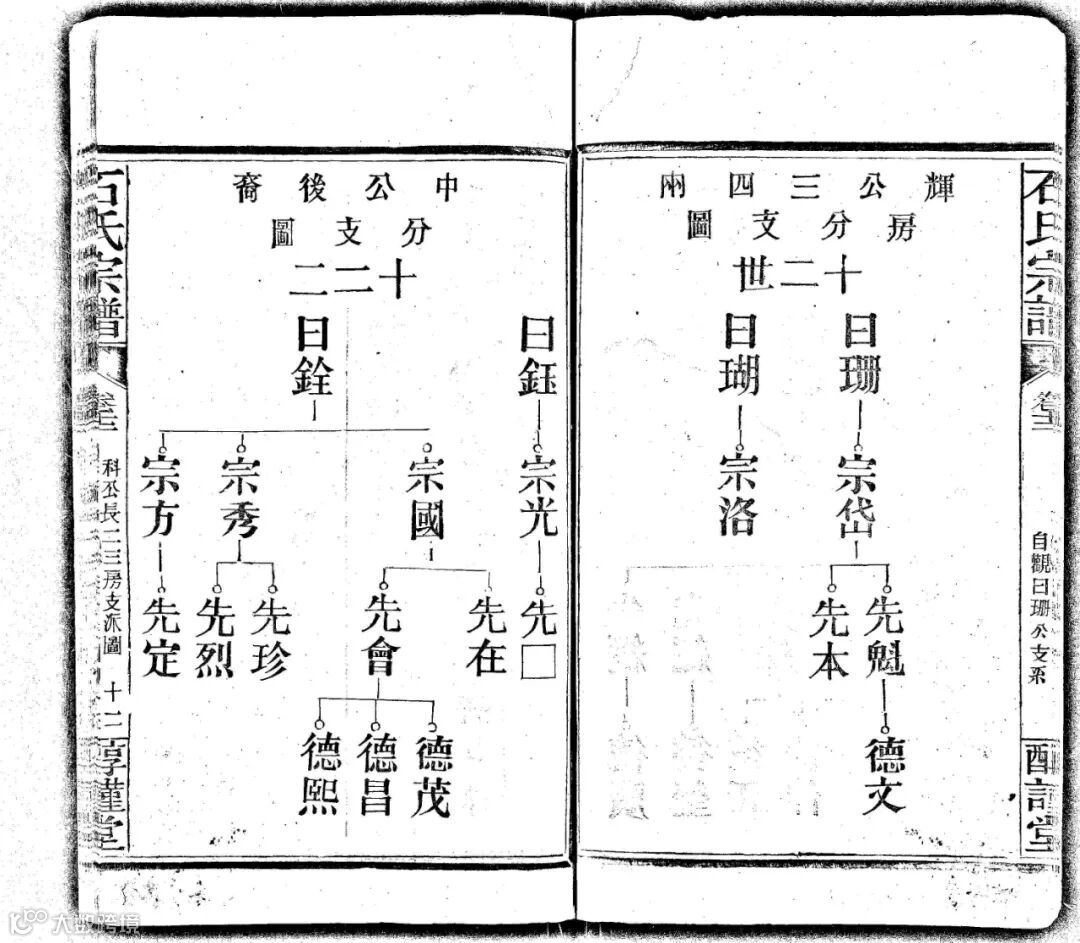 石氏宗譜
自觀曰珊公支系
輝公三四兩
房分支圖
十二世
曰珊
曰瑚
宗岱
宗洛
先魁
先本
德文
中公後裔
分支圖
十二二
曰鈺
曰銓
宗光
宗國
宗秀
宗方
先□
先在
先會
先珍
先烈
先定
德茂
德昌
德熙
石氏宗譜
科公長二三房支派圖
十二
大數跨境